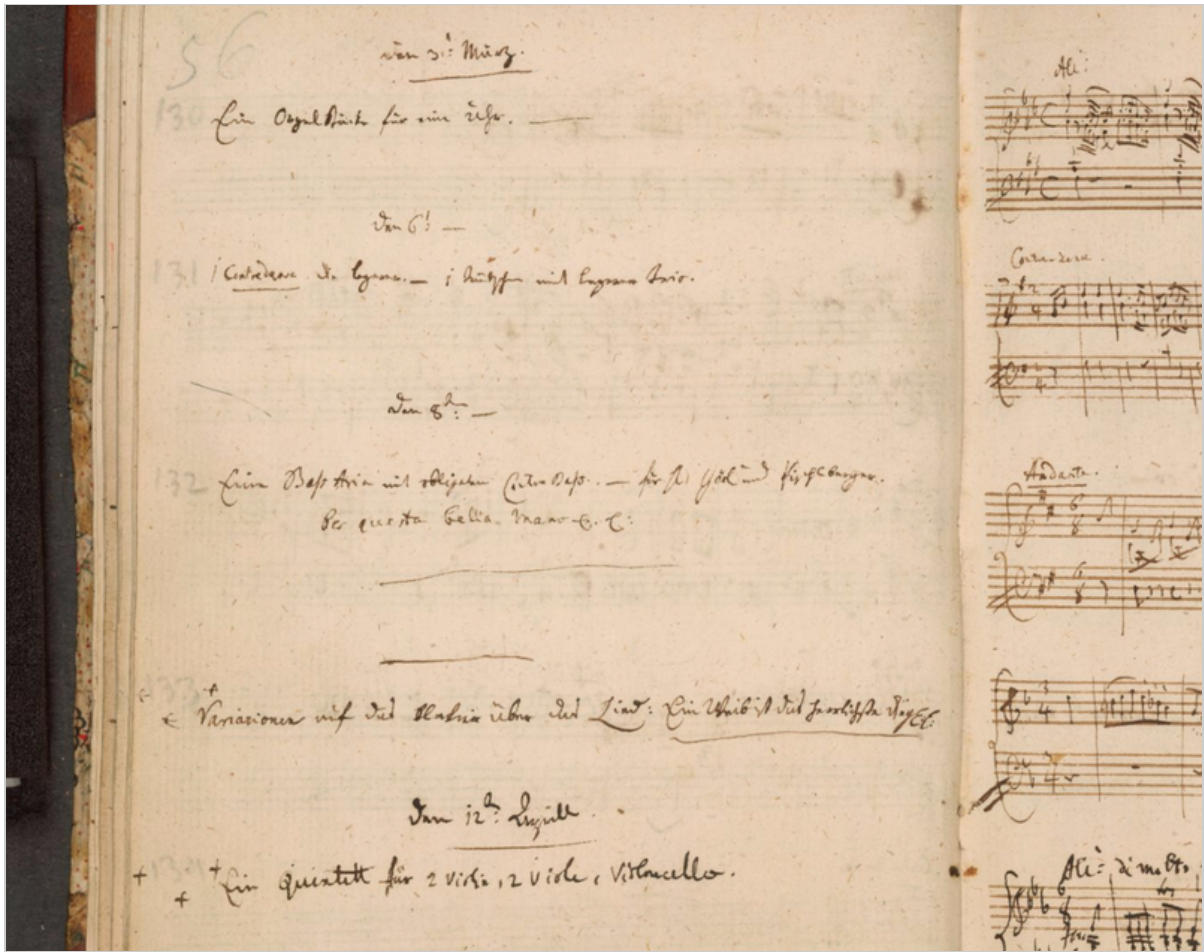 56
den 3:t März.
130
Ein Orgel Stücke für eine Uhr.
den 6:t
131
1 Contredanse. die leyerer. — 1 teutscher mit leyerer trio.
den 8:t
132
Eine Bass Aria mit obligaten ContraBass. — für H: Görl und Pischlberger.
Per questa bella mano &. &:
133
Variazionen auf das Klavier über das Lied: Ein Weib ist das herrlichste Ding &&:
den 12:t April
134
Ein Quintett für 2 Violin, 2 Viole, e Violoncello.
All:
Contredanse.
Andante.
All: di molto